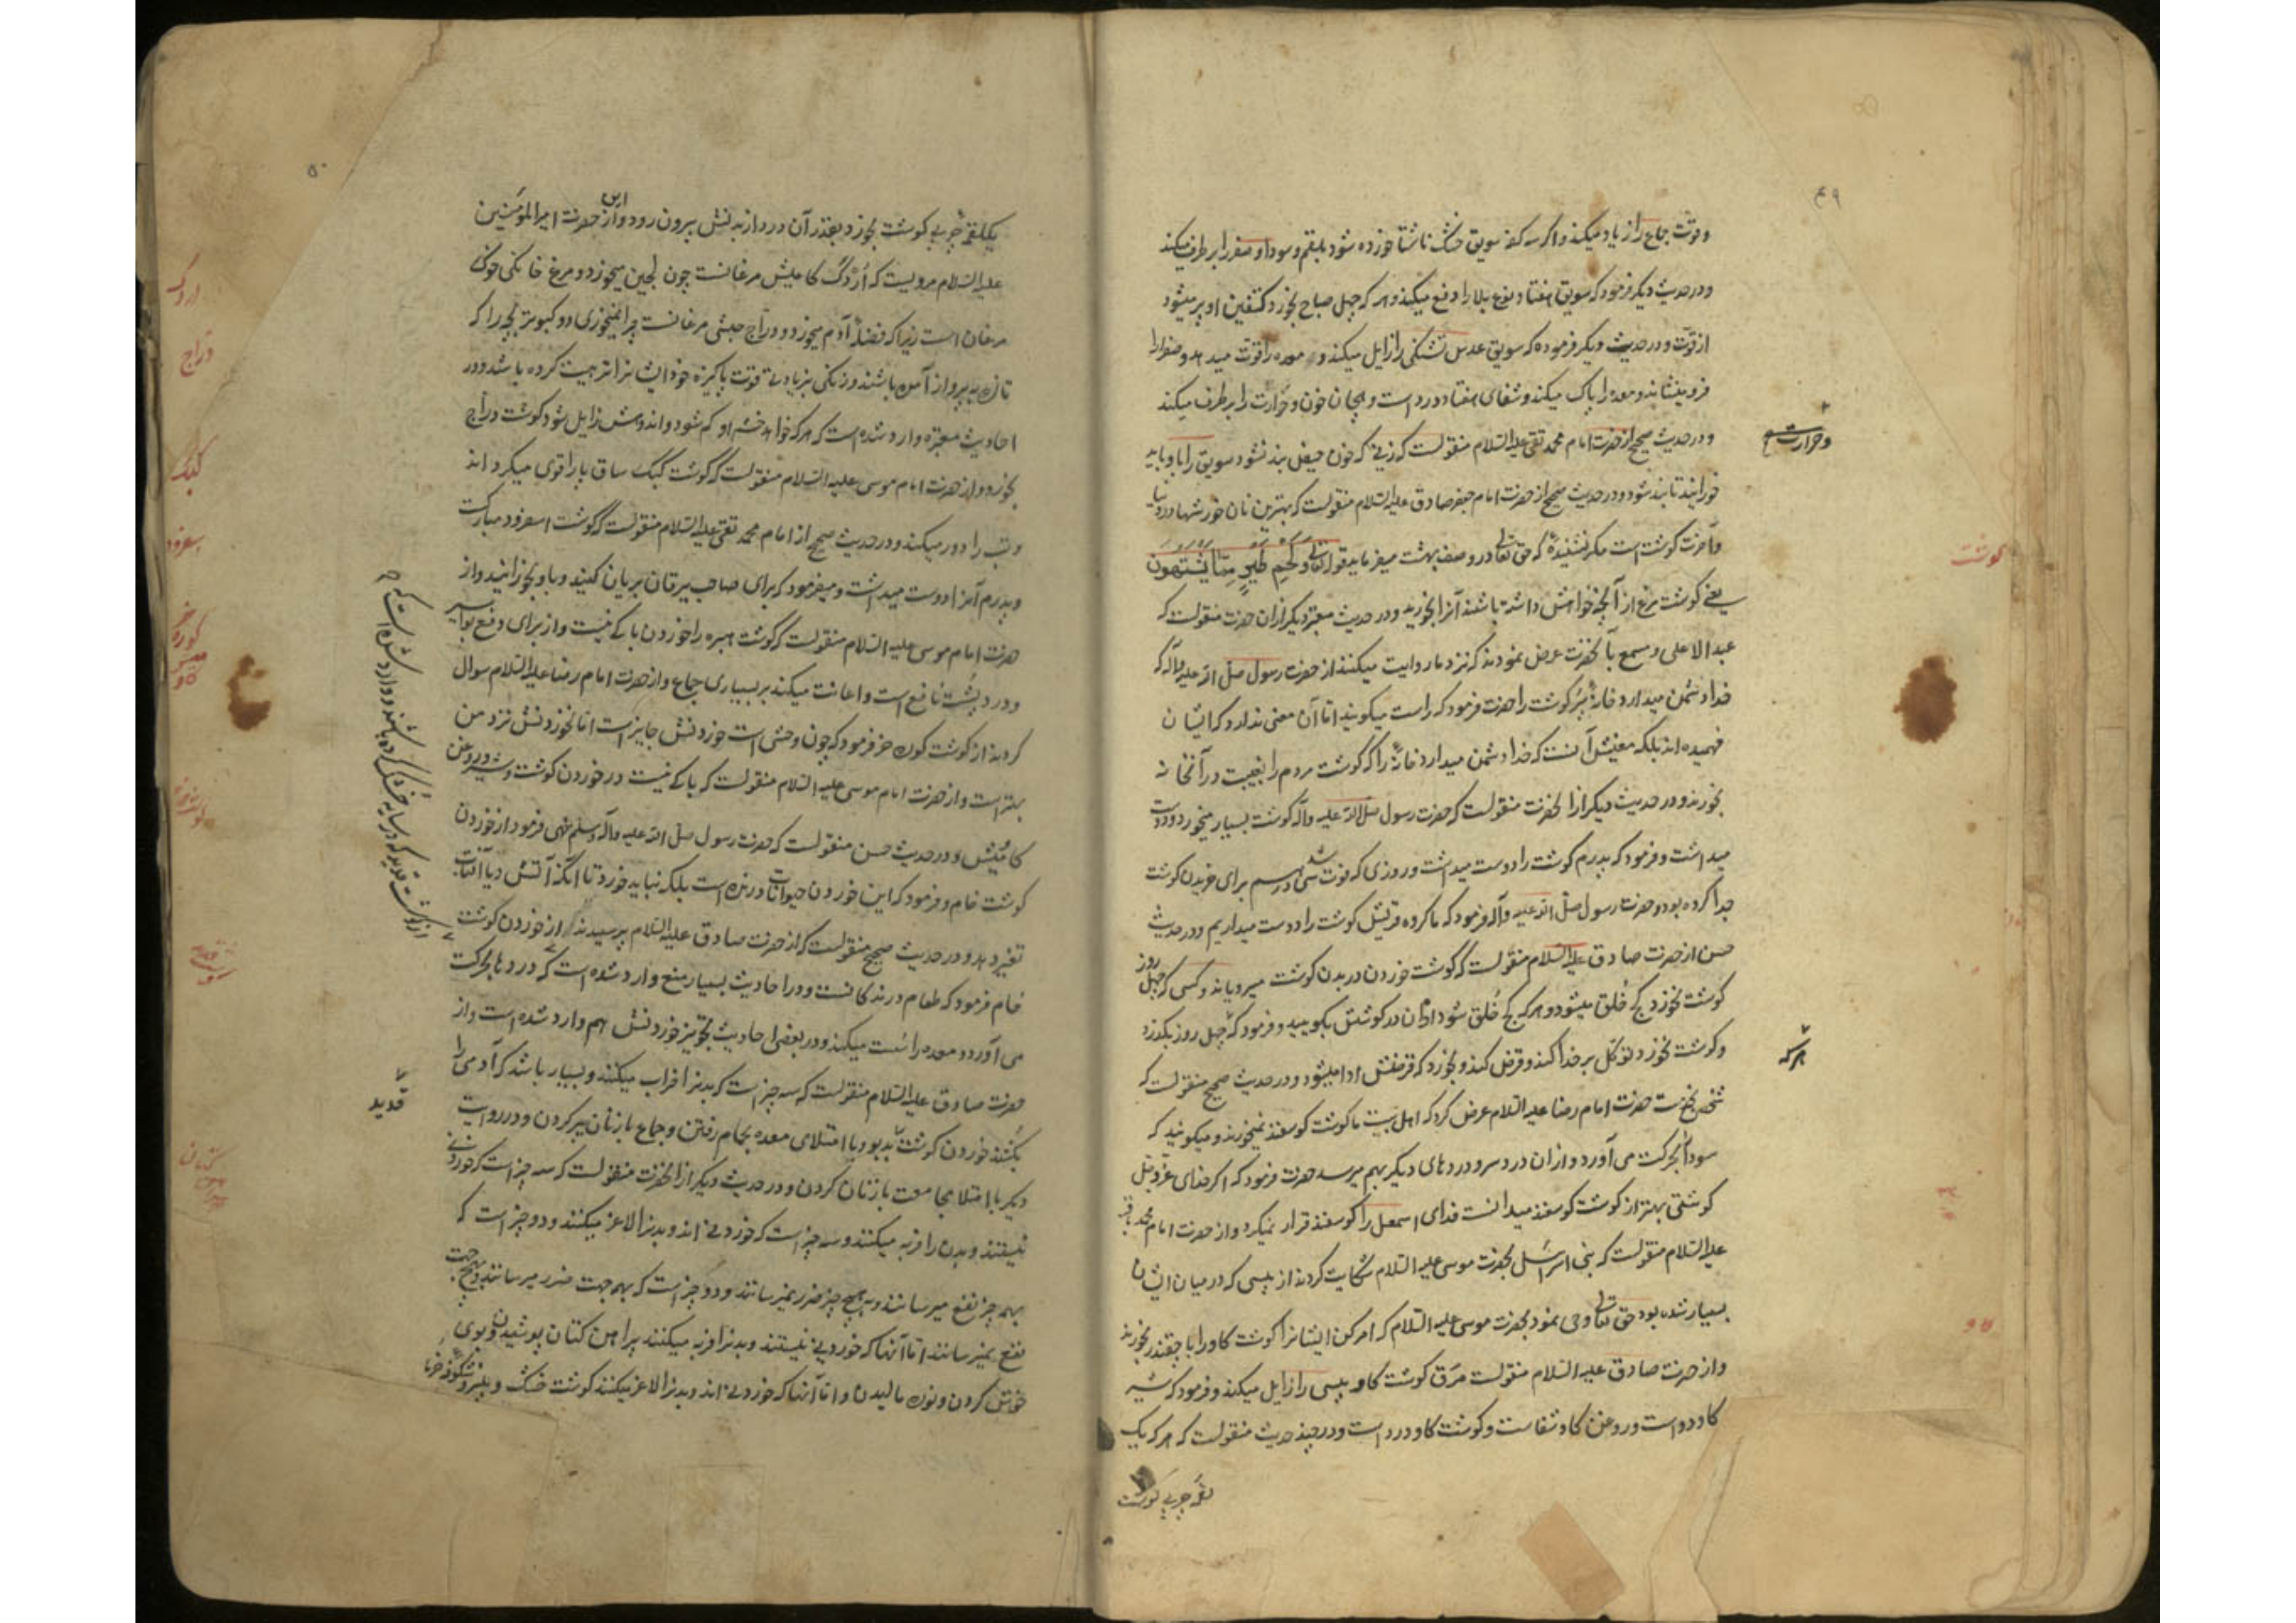 ۴۹
وقوّت جماع را زیاد میکند و اگر سه کف سویق خشک ناشتا خورده شود بلغم و سودا و صفرا برطرف میکند
و در حدیث دیگر فرمود که سویق هفتاد نوع بلا را دفع میکند و هر که چهل صباح بخورد کتفین او پر میشود
از قوّت و در حدیث دیگر فرموده که سویق عدس تشنگی را زایل میکند و معده را قوّت میدهد و صفرا را
فرو مینشاند و معده را پاک میکند و شفای هفتاد درد است و هیجان خون و حرارت را برطرف میکند
و حرارت
و در حدیث صحیح از حضرت امام محمد تقی علیه السّلام منقولست که زنی که خون حیض بند نشود سویق را باو باید
خورانید تا بند شود و در حدیث صحیح از حضرت امام جعفر صادق علیه السّلام منقولست که بهترین نان خورشها در دنیا
گوشت
و آخرت گوشت است مگر نشنیدهٔ که حق تعالی در وصف بهشت میفرماید قوله تعالی وَلَحْمِ طَیْرٍ مِمَّا یَشْتَهُونَ
یعنی گوشت مرغ از آنچه خواهش داشته باشند آنرا بخورید و در حدیث معتبر دیگر از آن حضرت منقولست که
عبد الاعلی و مسمع بآنحضرت عرض نمودند که نزد ما روایت میکنند از حضرت رسول صلی الله علیه و آله که
خدا دشمن میدارد خانهٔ پُر گوشت را حضرت فرمود که راست میگویند امّا آن معنی ندارد که ایشان
فهمیده اند بلکه معنیش آنست که خدا دشمن میدارد خانهٔ را که گوشت مردم را بغیبت در آنخانه
بخورند و در حدیث دیگر از آنحضرت منقولست که حضرت رسول صلی الله علیه و آله گوشت بسیار میخورد و دوست
میداشت و فرمود که پدرم گوشت را دوست میداشت و روزی که فوت شد سی درهم برای خریدن گوشت
جدا کرده بود و حضرت رسول صلی الله علیه و آله فرمود که ما گروه قریش گوشت را دوست میداریم و در حدیث
حسن از حضرت صادق علیه السّلام منقولست که گوشت خوردن در بدن گوشت میرویاند و کسی که چهل روز
گوشت نخورد کج خُلق میشود و هر که کج خُلق شود اذان در گوشش بگویید و فرمود که چهل روز بگذرد
هر که
و گوشت نخورد توکّل بر خدا کند و قرض کند و بخورد که قرضش ادا میشود و در حدیث صحیح منقولست که
شخصی بخدمت حضرت امام رضا علیه السّلام عرض کرد که اهل بیت ما گوشت گوسفند نمیخورند و میگویند که
سودا بحرکت می آورد و از آن درد سر و دردهای دیگر بهم میرسد حضرت فرمود که اگر خدای عزّ و جلّ
گوشتی بهتر از گوشت گوسفند میدانست فدای اسمعیل را گوسفند قرار نمیکرد و از حضرت امام محمد باقر
علیه السّلام منقولست که بنی اسرائیل بحضرت موسی علیه السّلام شکایت کردند از پیسی که در میان ایشان
گاو
بسیار شده بود حق تعالی وحی نمود بحضرت موسی علیه السّلام که امر کن ایشانرا گوشت گاو را با چقندر بخورند
و از حضرت صادق علیه السّلام منقولست مرَق گوشت گاو پیسی را زایل میکند و فرمود که شیر
گاو دواست و روغن گاو شفاست و گوشت گاو درد است و در چند حدیث منقولست که هر که یک
لقمه چربی گوشت
۵۰
یکلقمهٔ چربی گوشت بخورد بقدر آن درد از بدنش بیرون رود و از حضرت امیر المؤمنین
اردک
علیه السّلام مرویست که اُرْدَک گاومیش مرغانست چون لجن میخورد و مرغ خانگی خوک
مرغان است زیرا که فضلهٔ آدم میخورد و درّاج حبشی مرغانست چرا نمیخوری دو کبوتر بچه را که
درّاج
تازه به پرواز آمده باشند و زنکی بزیادتی قوّت پاکیزه خود ایشانرا تربیت کرده باشد و در
احادیث معتبره وارد شده است که هر که خواهد خشم او کم شود و اندوهش زایل شود گوشت درّاج
کبک
بخورد و از حضرت امام موسی علیه السّلام منقولست که گوشت کبک ساق پا را قوی میگرداند
اسفرود
و تب را دور میکند و در حدیث صحیح از امام محمد تقی علیه السّلام منقولست که گوشت اسفرود مبارکست
و پدرم آنرا دوست میداشت و میفرمود که برای صاحب یرقان بریان کنید و باو بخورانید و از
حضرت امام موسی علیه السّلام منقولست که گوشت هبره را خوردن باکی نیست و از برای دفع بواسیر
و درد پُشت نافع است و اعانت میکند بر بسیاری جماع و از حضرت امام رضا علیه السّلام سوال
کردند از گوشت گوره خر فرمود که چون وحشی است خوردنش جایز است امّا نخوردنش نزد من
بهتر است و از حضرت امام موسی علیه السّلام منقولست که باکی نیست در خوردن گوشت و شیر و روغن
گاومیش و در حدیث حسن منقولست که حضرت رسول صلی الله علیه و آله و سلم نهی فرمود از خوردن
گوشت خام و فرمود که این خوردن حیوانات درنده است بلکه نباید خورد تا آنکه آتش یا آفتاب
تغییر دهد و در حدیث صحیح منقولست که از حضرت صادق علیه السّلام پرسیدند از خوردن گوشت
خام فرمود که طعام درندگانست و در احادیث بسیار منع وارد شده است که دردها بحرکت
می آورد و معده را سُست میکند و در بعضی احادیث تجویز خوردنش هم وارد شده است و از
قدید
حضرت صادق علیه السّلام منقولست که سه چیز است که بدنرا خراب میکنند و بسیار باشد که آدمی را
بکُشند خوردن گوشت بدبو و با امتلای معده بحمام رفتن و جماع با زنان پیر کردن و در روایت
دیگر با امتلا مجامعت با زنان کردن و در حدیث دیگر از آنحضرت منقولست که سه چیز است که خوردنی
نیستند و بدن را فربه میکنند و سه چیز است که خوردنی اند و بدنرا لاغر میکنند و دو چیز است که
بهمه چیز نفع میرسانند و به هیچ چیز ضرر نمیرسانند و دو چیز است که بهمه جهت ضرر میرسانند و بهیچ جهت
نفع نمیرسانند امّا آنها که خوردنی نیستند و بدنرا فربه میکنند پیراهن کتان پوشیدن و بوی
خوش کردن و نوره مالیدن و امّا آنها که خوردنی اند و بدنرا لاغر میکنند گوشت خشک و پنیر و شکوفه خرما